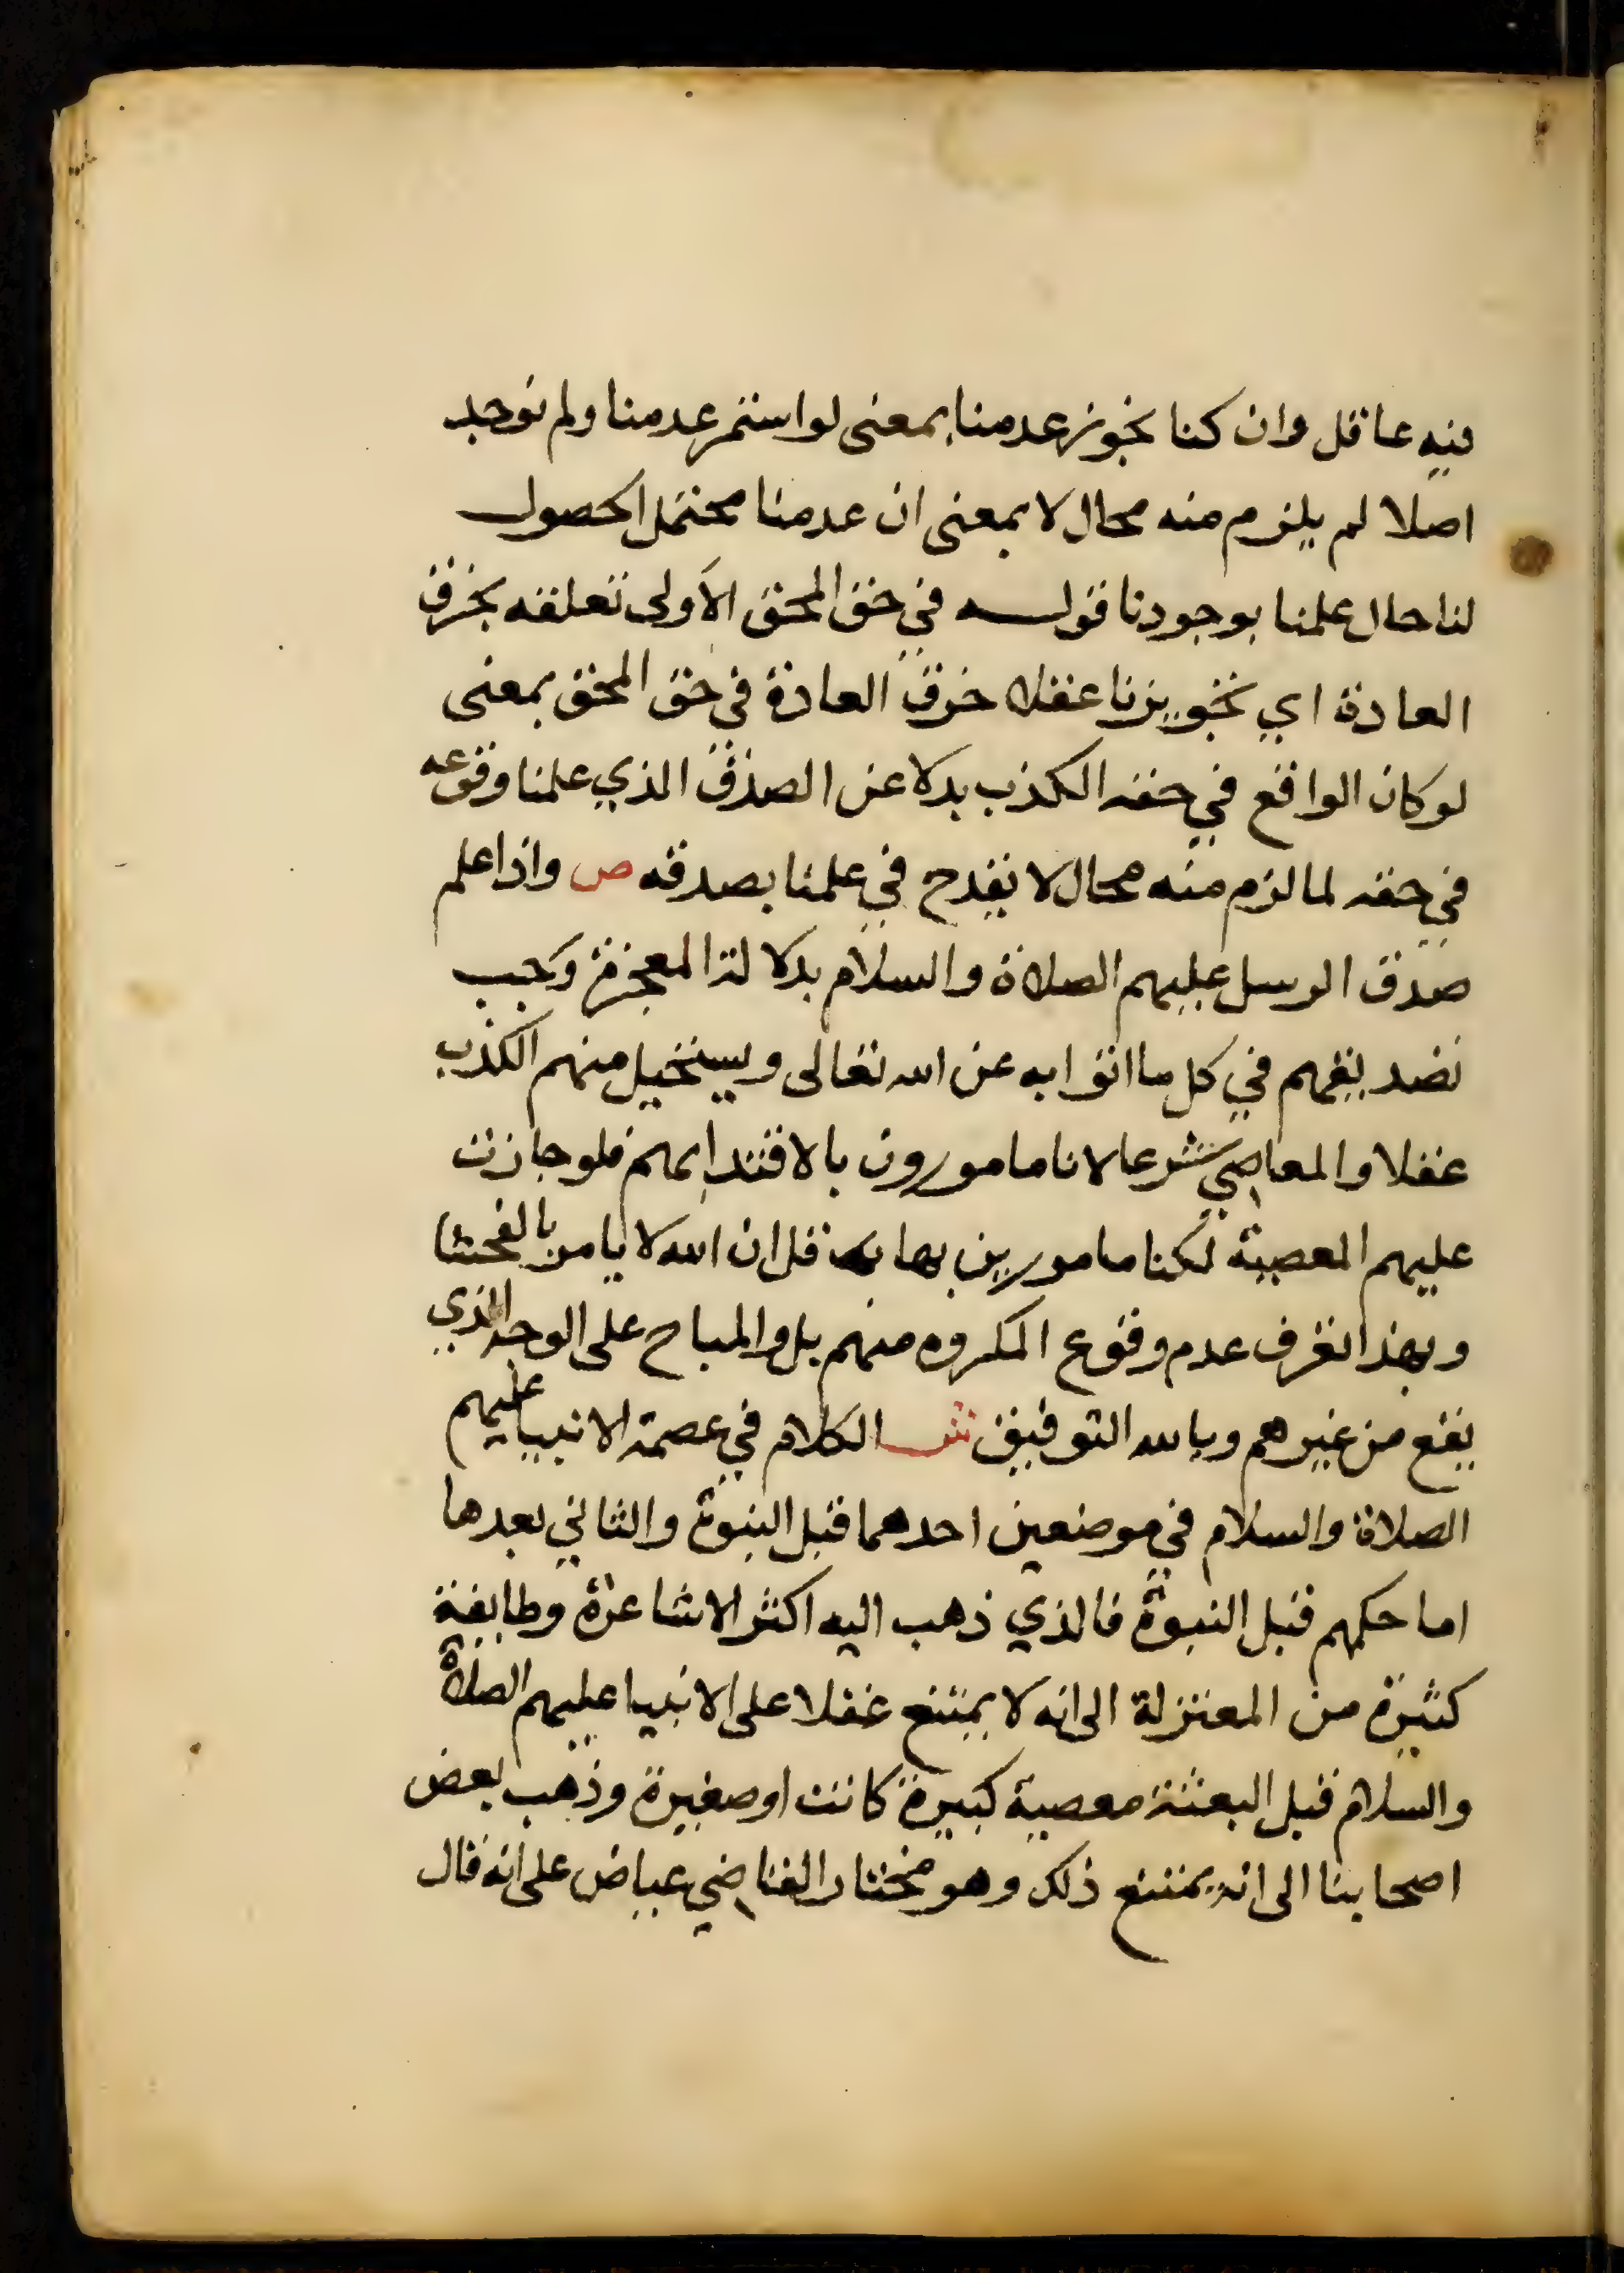 فيه عاقل وان كنا نجوز عدمنا بمعنى لو استمر عدمنا ولم نوجد
اصلا لم يلزم منه محال لا بمعنى ان عدمنا محتمل الحصول
لنا حال علمنا بوجودنا قوله في حق المحق الاولى تعلقه بخرق
العادة اي تجويزنا عقلا خرق العادة في حق المحق بمعنى
لو كان الواقع في حقه الكذب بدلا عن الصدق الذي علمنا وقوعه
في حقه لما لزم منه محال لا يقدح في علمنا بصدقه ص واذا علم
صدق الرسل عليهم الصلاة والسلام بدلالة المعجزة وجب
تصديقهم في كل ما اتوا به عن الله تعالى ويستحيل منهم الكذب
عقلا والمعاصي شرعا لانا مامورون بالاقتدا بهم فلو جازت
عليهم المعصية لكنا مامورين بها قل ان الله لا يامر بالفحشا
وبهذا تعرف عدم وقوع المكروه منهم بل والمباح على الوجه الذي
يقع من غيرهم وبالله التوفيق ش الكلام في عصمة الانبيا عليهم
الصلاة والسلام في موضعين احدهما قبل النبوة والثاني بعدها
اما حكمهم قبل النبوة فالذي ذهب اليه اكثر الاشاعرة وطايفة
كثيرة من المعتزلة الى انه لا يمتنع عقلا على الانبيا عليهم الصلاة
والسلام قبل البعثة معصية كبيرة كانت او صغيرة وذهب بعض
اصحابنا الى انه يمتنع ذلك وهو مختار القاضي عياض على انه قال